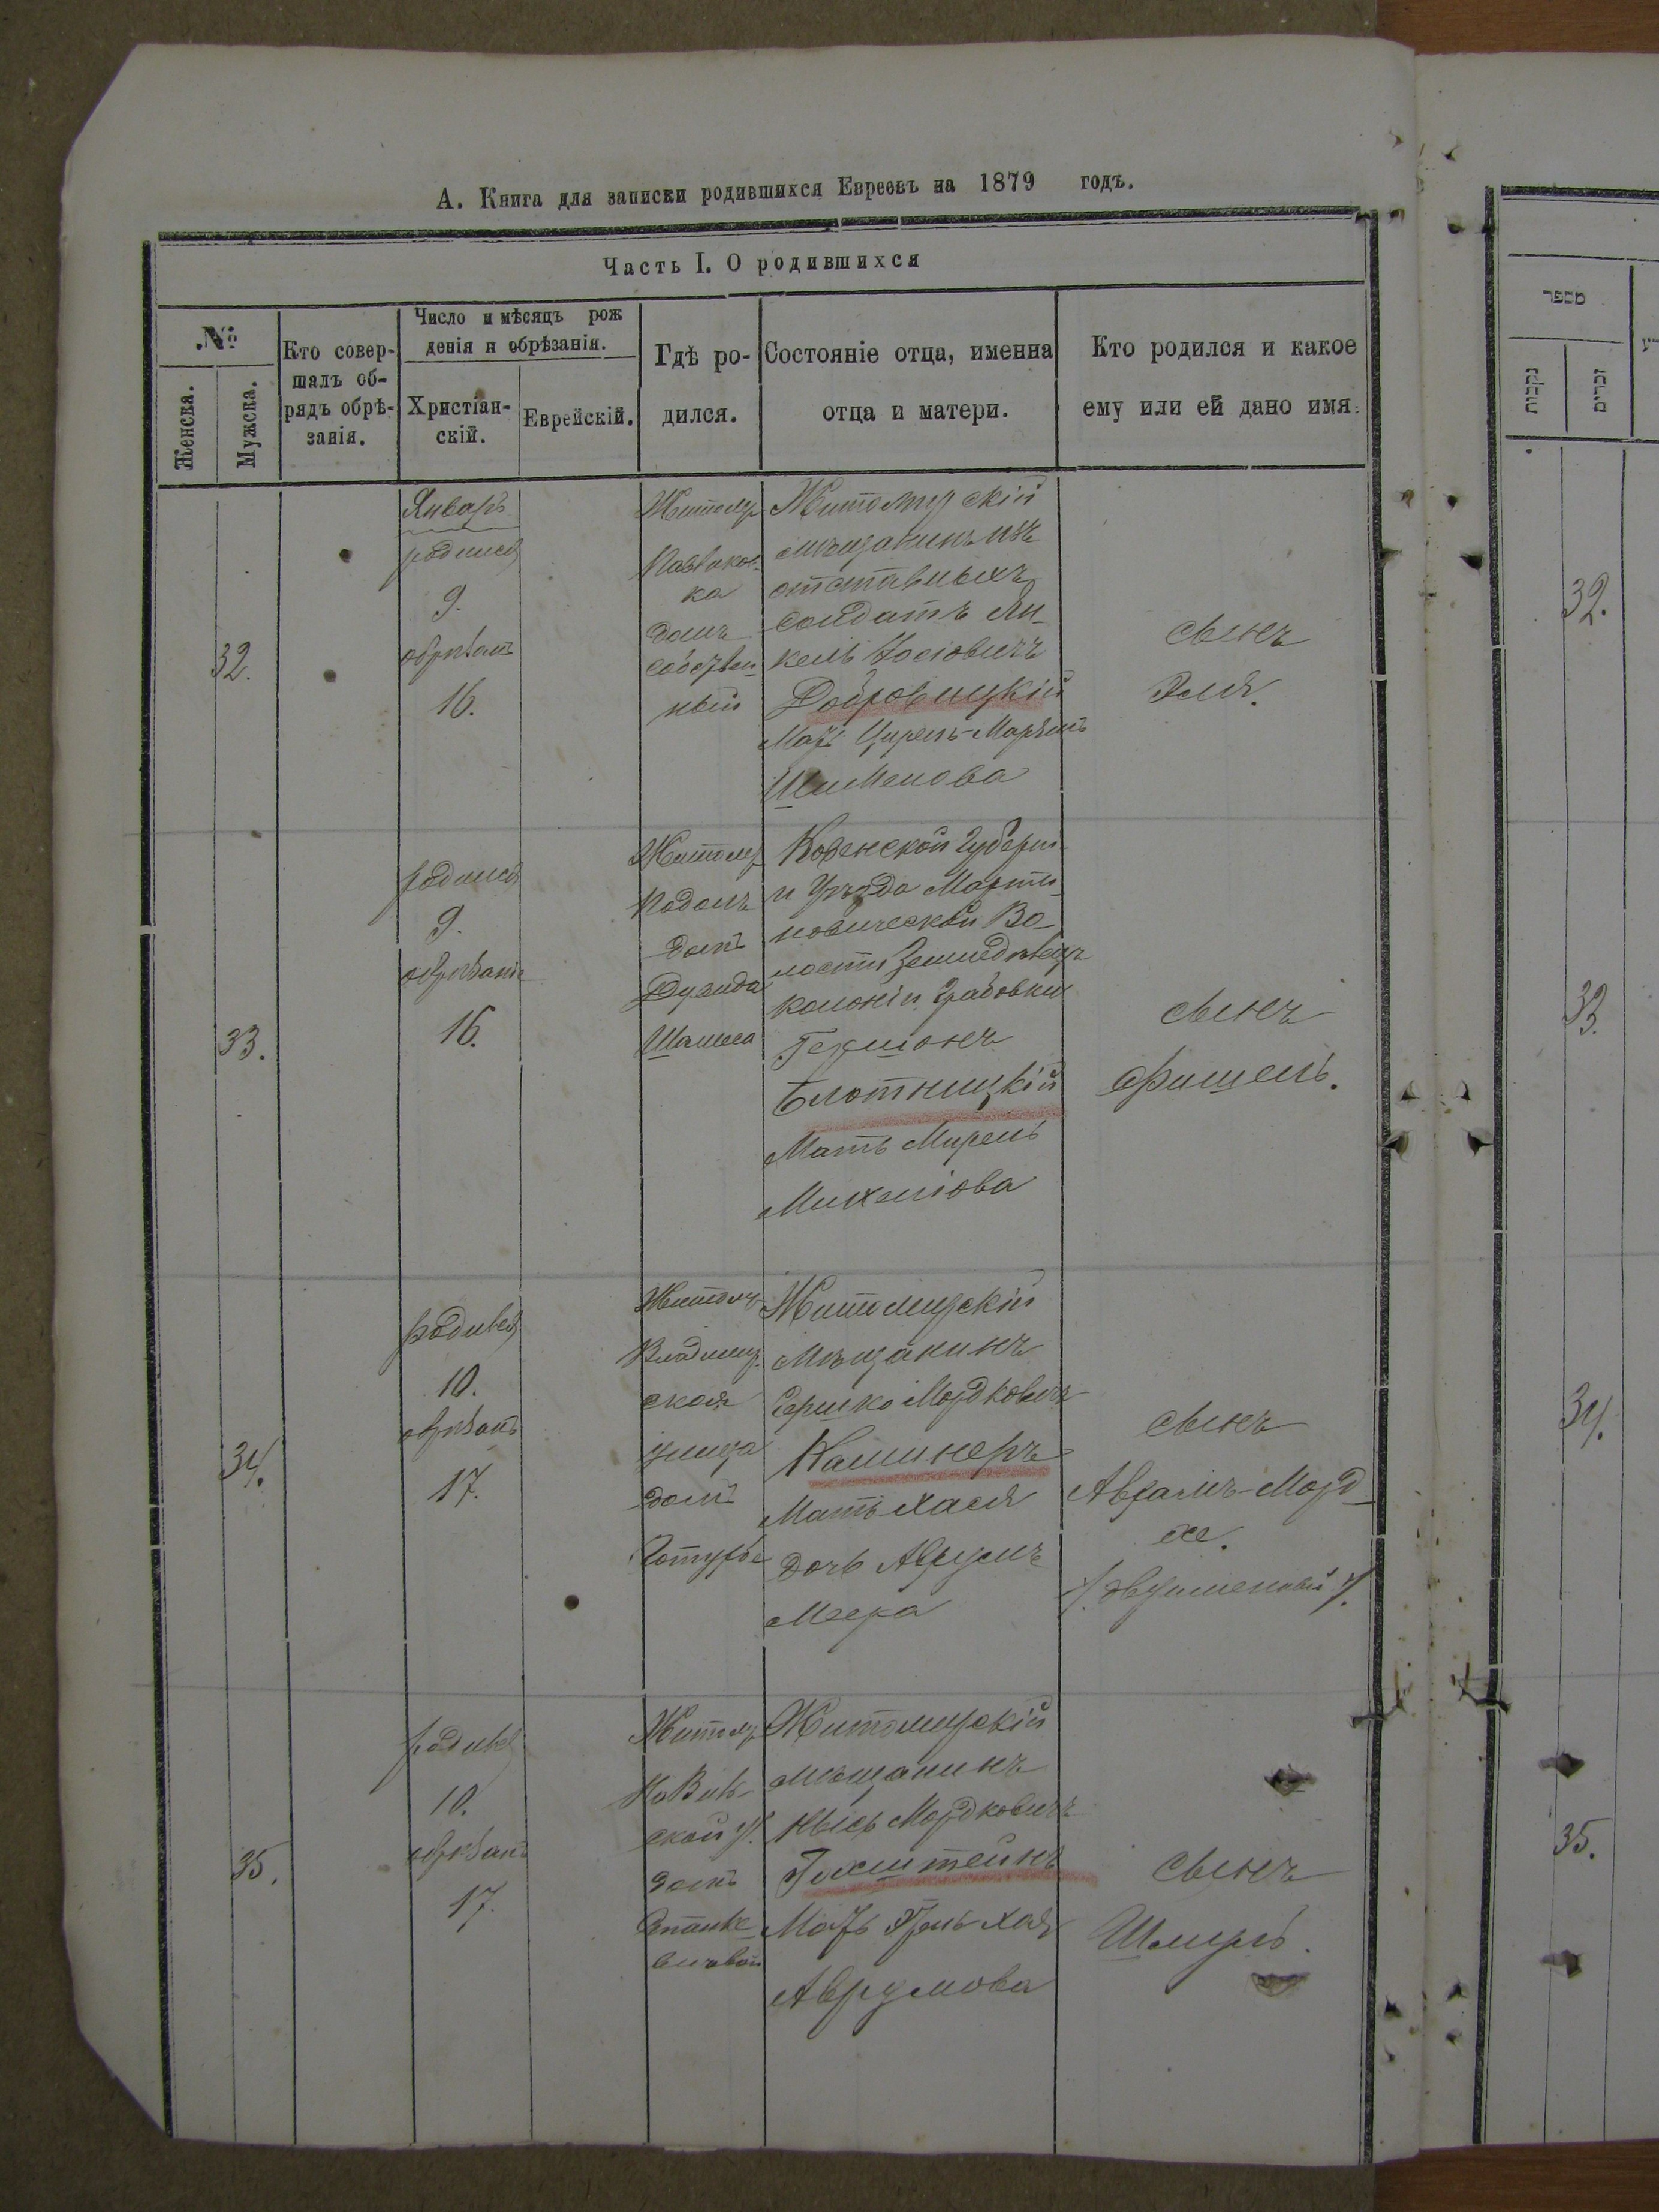 А. Книга для записки родившихся Евреевъ на 1879 годъ.
Часть I. О родившихся
№
Женска.
Мужска.
Кто совер-
шалъ об-
рядъ обрѣ-
занія.
Число и мѣсяцъ рож
денія и обрѣзанія.
Христіан-
скій.
Еврейскій.
Гдѣ ро-
дился.
Состояніе отца, именна
отца и матери.
Кто родился и какое
ему или ей дано имя.
32.
Январь
родился
9.
обрѣзанъ
16.
Житомир
ка
домъ
собствен-
ный
Житомирскій
мѣщанинъ изъ
отставныхъ
солдатъ Ян-
кель Іосіовичъ
Добровицкій
Мать Цирель-Марьямъ
Шименова
сынъ
Эля.
33.
родился
9.
обрѣзаніе
16.
Житомир
Подолъ
домъ
Шамеса
Ковенской Губерни
и Уѣзда
Во-
лости Земледѣлецъ
колоніи Грабовки
Гершонъ
Блотницкій
Мать Мирель
Михеліова
сынъ
Фишель.
34.
родився
10.
обрѣзанъ
17.
Житомир
Владимир-
ская
улица
домъ
Житомирскій
Мѣщанинъ
Гершко Мордковичъ
Каминеръ
Мать Хася
дочь Аврумъ
Меера
сынъ
Аврамъ-Морд-
хе.
/. двуименный ./.
35.
родився
10.
обрѣзанъ
17.
Житомир
ской У.
домъ
Станке-
вичовой
Житомирскій
мѣщанинъ
Мордковичъ
Гохштейнъ
Мать Хая
Аврумова
сынъ
Шмиръ.
מספר
נקבות
זכרים
32.
33.
34.
35.